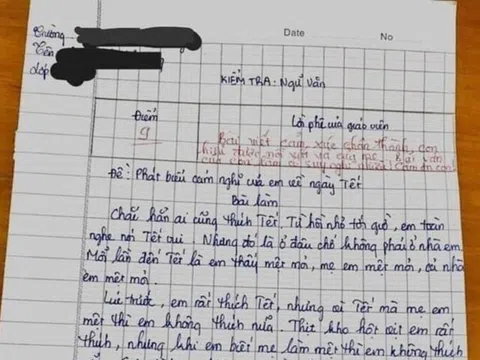 Date No
Trường
Tên
Lớp
KIỂM TRA: NGỮ VĂN
Điểm
Lời phê của giáo viên
9
Bài viết cảm xúc chân thành, con
hiểu được nỗi vất vả của mẹ. Bài văn
của con làm cô suy nghĩ nhiều! Cảm ơn con!
Đề: Phát biểu cảm nghĩ của em về ngày Tết
Bài làm
Chắc hẳn ai cũng thích Tết. Từ hồi nhỏ tới giờ, em toàn
nghe nói Tết vui. Nhưng đó là ở đâu chớ không phải ở nhà em
Mỗi lần đến Tết là em thấy mệt mỏi, mẹ em mệt mỏi, cả nhà
em mệt mỏi.
Lúc trước, em rất thích Tết, nhưng vì Tết mà mẹ em
mệt thì em không thích nữa. Thịt kho hột vịt em rất
thích, nhưng khi em biết mẹ làm mệt thì em không thích